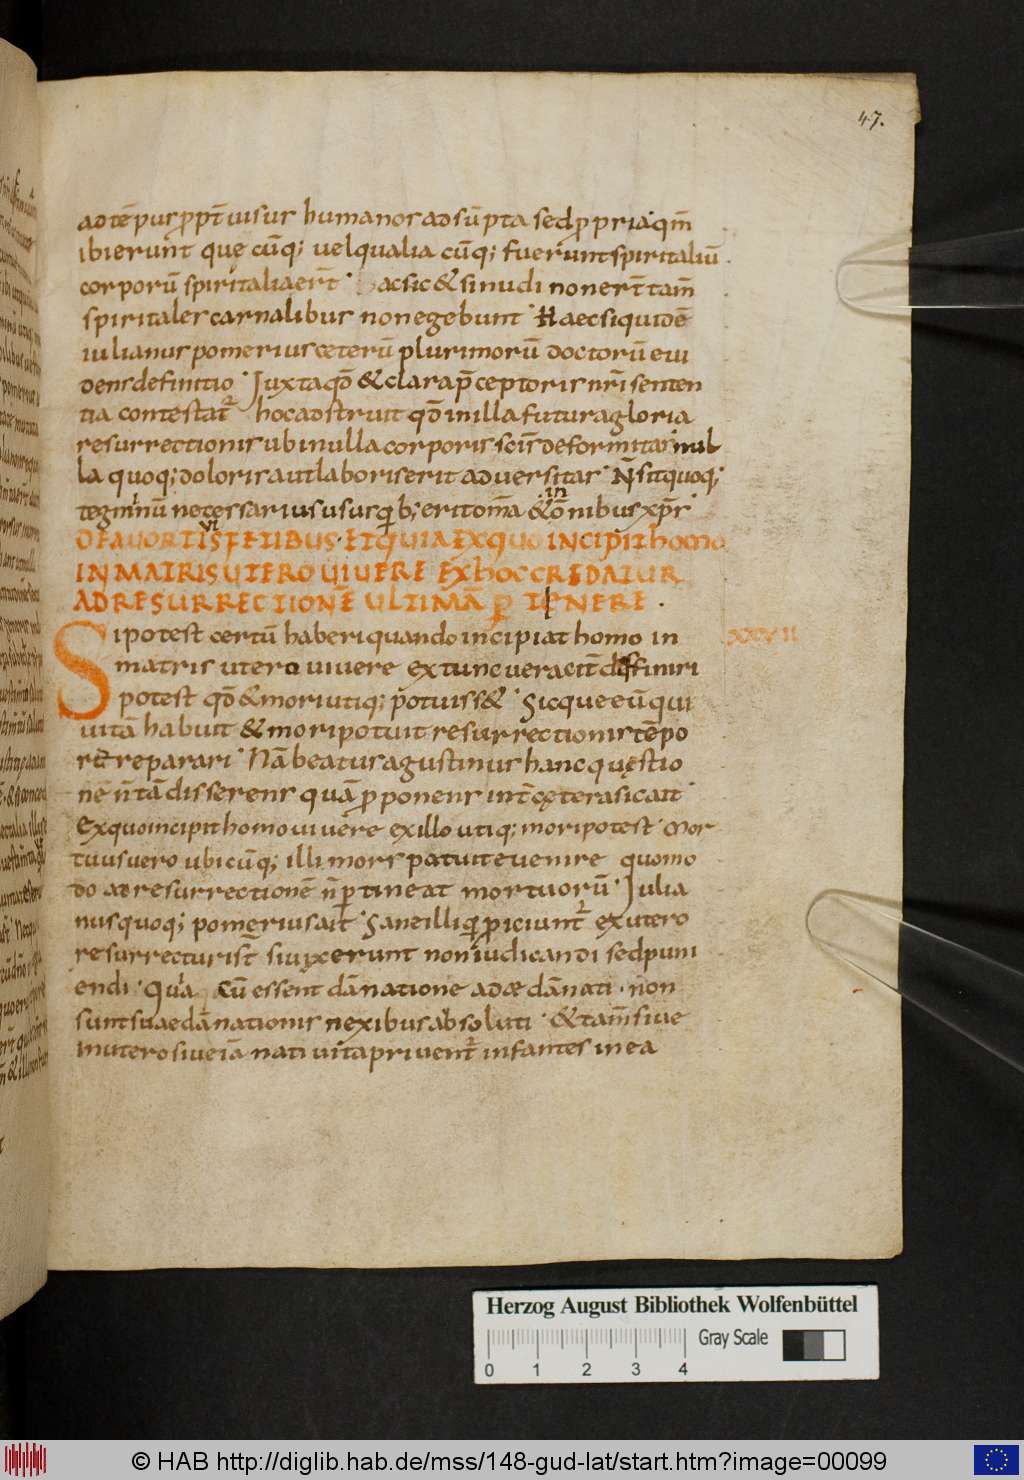 47.
adtēpus ꝓpt̄ uisus humanos adsūpta sed ꝓpria· qm̄
ibi erunt que cūq; uel qualia cūq; fuerunt spiritaliū
corporū spiritalia er̄t · ac sic & si nudi non er̄t tam̄
spiritales carnalibus non egebunt · Haec siquidē
iulianus pomerius ceterū plurimorū doctorū eui
dens definitio · Juxta qd̄ & clara p̄ceptoris nr̄i senten
tia contestat᷑ hoc adstruit qd̄ in illa futura gloria
resurrectionis ubi nulla corporis sc̄is deformitas nul
la quoq; doloris aut laboris erit aduersitas · N̄ sit quoq;
tegminū necessarius usus qib; erit om̄a & in om̄nibus xp̄s ·
DE AUORTIUIS FETIBUS · ET QUIA EX QUO INCIPIT homo
IN MATRIS UTERO UIUERE EX hOC CREDATUR
AD RESURRECTIONĒ ULTIMĀ ꝑTENERE ·
Si potest certū haberi quando incipiat homo in
XXXVII
matris utero uiuere ex tunc ueracit̄ diffiniri
potest qd̄ & mori utiq; p̄otuiss& · Sicque eū qui
uitā habuit & mori potuit resurrectionis tēpo
re reparari · Nā beatus agustinus hanc quęstio
nē n̄ tā disserens quā ꝓponens int̄ cętera sic ait ·
Ex quo incipit homo uiuere ex illo utiq; mori potest · Mor
tuus uero ubicūq; illi mors patuit euenire quomo
do ad resurrectionē n̄ ꝑtineat mortuorū · Julia
nus quoq; pomerius ait · Sane illi qi ꝓiciunt᷑ ex utero
resurrecturi st̄ si uixerunt non iudicandi sed puni
endi · Quia Cū essent dānatione adae dānati · non
sunt suae dānationis nexibus absoluti · & tam̄ siue
in utero siue iā nati uita priuent᷑ infantes in ea
Herzog August Bibliothek Wolfenbüttel
Gray Scale
0 1 2 3 4
© HAB http://diglib.hab.de/mss/148-gud-lat/start.htm?image=00099